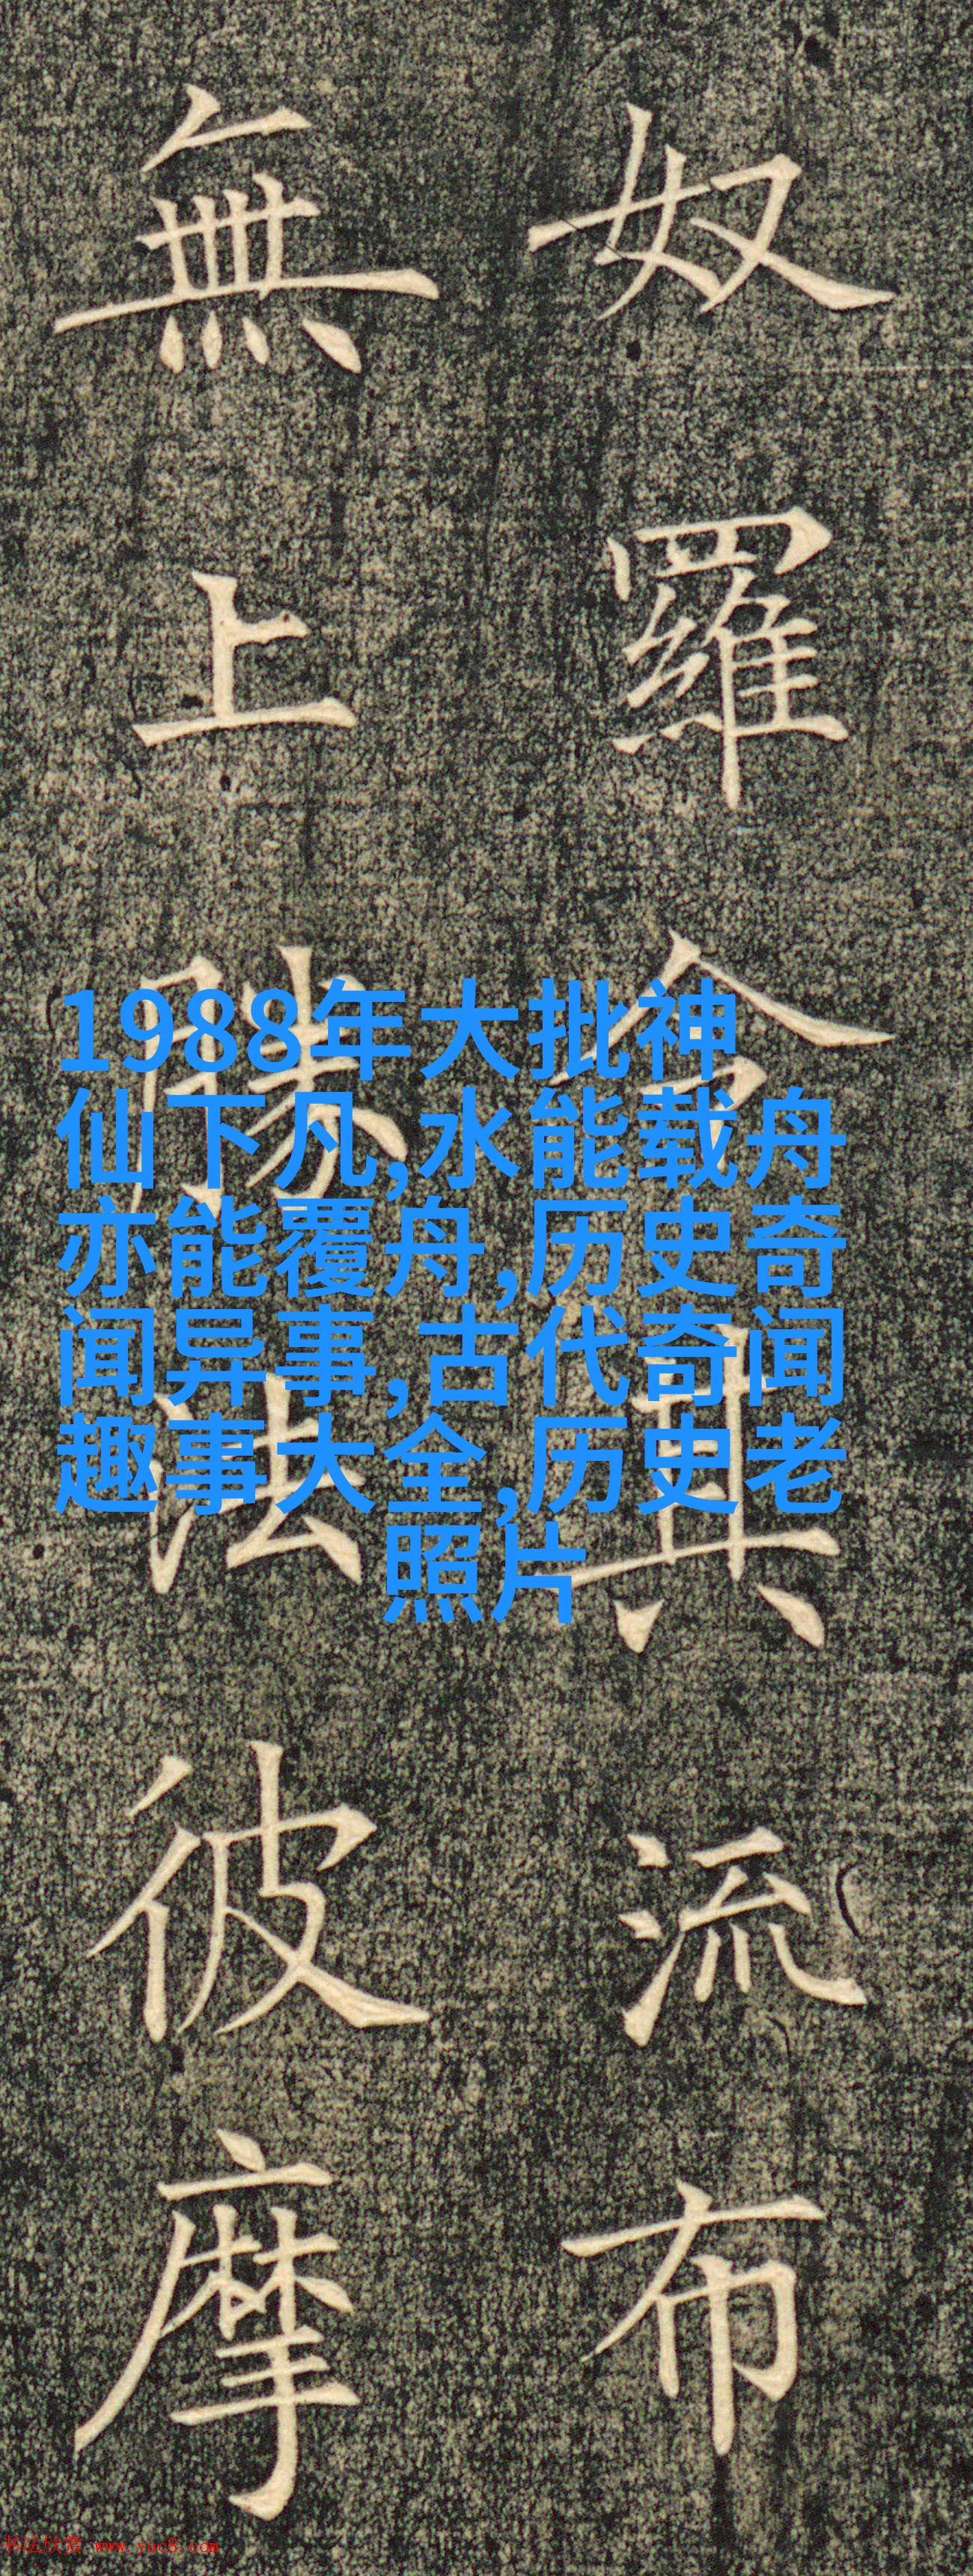 奴羅令其流布
無上勝法彼摩
1988年大批神
仙下凡,水能载舟
亦能覆舟,历史奇
闻异事,古代奇闻
趣事大全,历史老
照片
书法欣赏 www.yac8.com